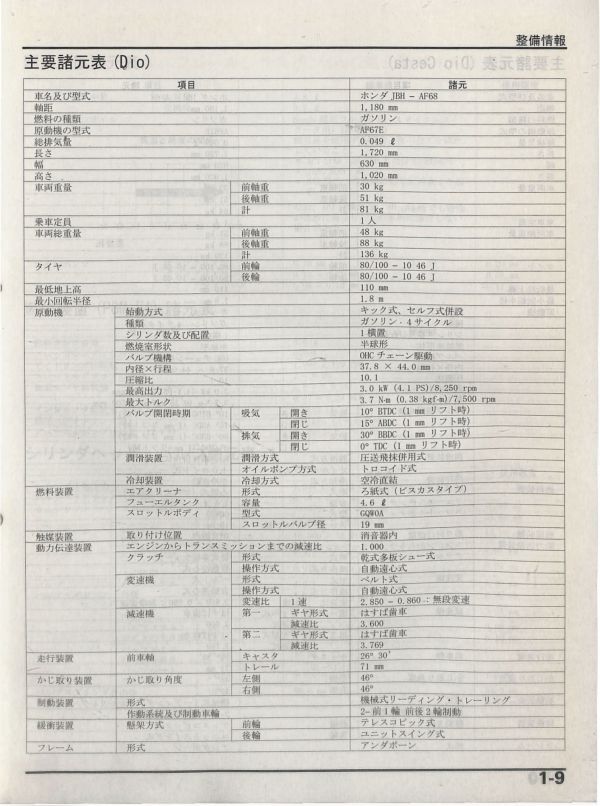 整備情報
主要諸元表 (Dio)
項目 諸元
車名及び型式 ホンダ JBH − AF68
軸距 1,180 mm
燃料の種類 ガソリン
原動機の型式 AF67E
総排気量 0.049 ℓ
長さ 1,720 mm
幅 630 mm
高さ 1,020 mm
車両重量 前軸重 30 kg
後軸重 51 kg
計 81 kg
乗車定員 1 人
車両総重量 前軸重 48 kg
後軸重 88 kg
計 136 kg
タイヤ 前輪 80/100 − 10 46 J
後輪 80/100 − 10 46 J
最低地上高 110 mm
最小回転半径 1.8 m
原動機 始動方式 キック式、セルフ式併設
種類 ガソリン・4 サイクル
シリンダ数及び配置 1 横置
燃焼室形状 半球形
バルブ機構 OHC チェーン駆動
内径×行程 37.8 × 44.0 mm
圧縮比 10.1
最高出力 3.0 kW (4.1 PS)/8,250 rpm
最大トルク 3.7 N·m (0.38 kgf·m)/7,500 rpm
バルブ開閉時期 吸気 開き 10° BTDC (1 mm リフト時)
閉じ 15° ABDC (1 mm リフト時)
排気 開き 30° BBDC (1 mm リフト時)
閉じ 0° TDC (1 mm リフト時)
潤滑装置 潤滑方式 圧送飛抹併用式
オイルポンプ方式 トロコイド式
冷却装置 冷却方式 空冷直結
燃料装置 エアクリーナ 形式 ろ紙式 (ビスカスタイプ)
フューエルタンク 容量 4.6 ℓ
スロットルボディ 型式 GQW0A
スロットルバルブ径 19 mm
触媒装置 取り付け位置 消音器内
動力伝達装置 エンジンからトランスミッションまでの減速比 1.000
クラッチ 形式 乾式多板シュー式
操作方式 自動遠心式
変速機 形式 ベルト式
操作方式 自動遠心式
変速比 1 速 2.850 − 0.860 : 無段変速
減速機 第一 ギヤ形式 はすば歯車
減速比 3.600
第二 ギヤ形式 はすば歯車
減速比 3.769
走行装置 前車軸 キャスタ 26° 30′
トレール 71 mm
かじ取り装置 かじ取り角度 左側 46°
右側 46°
制動装置 形式 機械式リーディング・トレーリング
作動系統及び制動車輪 2−前 1 輪 前後 2 輪制動
緩衝装置 懸架方式 前輪 テレスコピック式
後輪 ユニットスイング式
フレーム 形式 アンダボーン
1-9